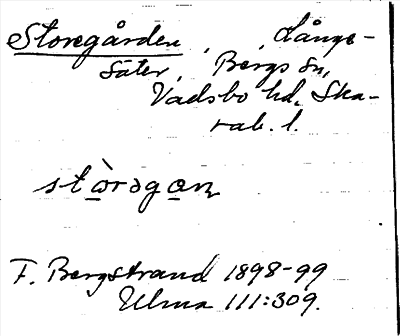 Storegården, Långe-
säter, Bergs sn,
Vadsbo hd. Ska-
rab. l.
stòrəgan
F. Bergstrand 1898-99
Ulma 111:309.